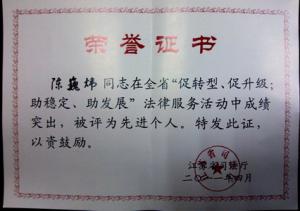 荣誉证书
陈巍炜同志在全省“促转型、促升级;
助稳定、助发展”法律服务活动中成绩
突出，被评为先进个人。特发此证，
以资鼓励。
江苏省司法厅
二〇一二年四月